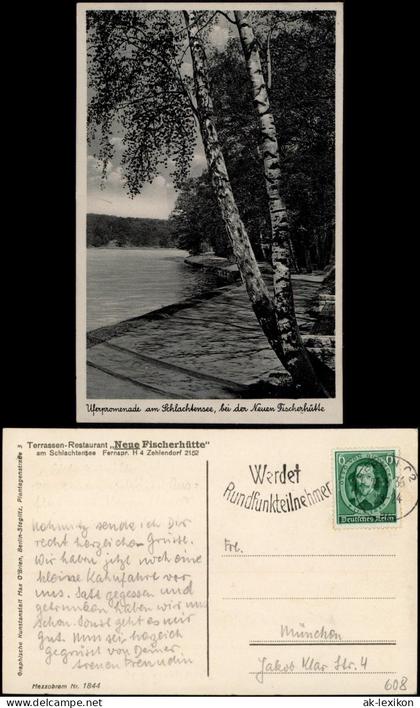 Uferpromenade am Schlachtensee, bei der Neuen Fischerhütte
Terrassen-Restaurant „Neue Fischerhütte"
am Schlachtensee Fernspr. H 4 Zehlendorf 2152
Graphische Kunstanstalt Max O'Brien, Berlin-Steglitz, Plantagenstraße 3
sende ich Dir
recht herzlichen Gruß.
Wir haben jetzt noch eine
kleine Kahnfahrt vor
uns. Satt gegessen und
getrunken haben wir uns
schon. Sonst geht es mir
gut. Nun sei herzlich
gegrüßt von Deiner
treuen Freundin
Mezzobrom Nr. 1844
Werdet
Rundfunkteilnehmer
6
6
Deutsches Reich
Frl.
München
Jakob Klar Str. 4
608
ak-lexikon